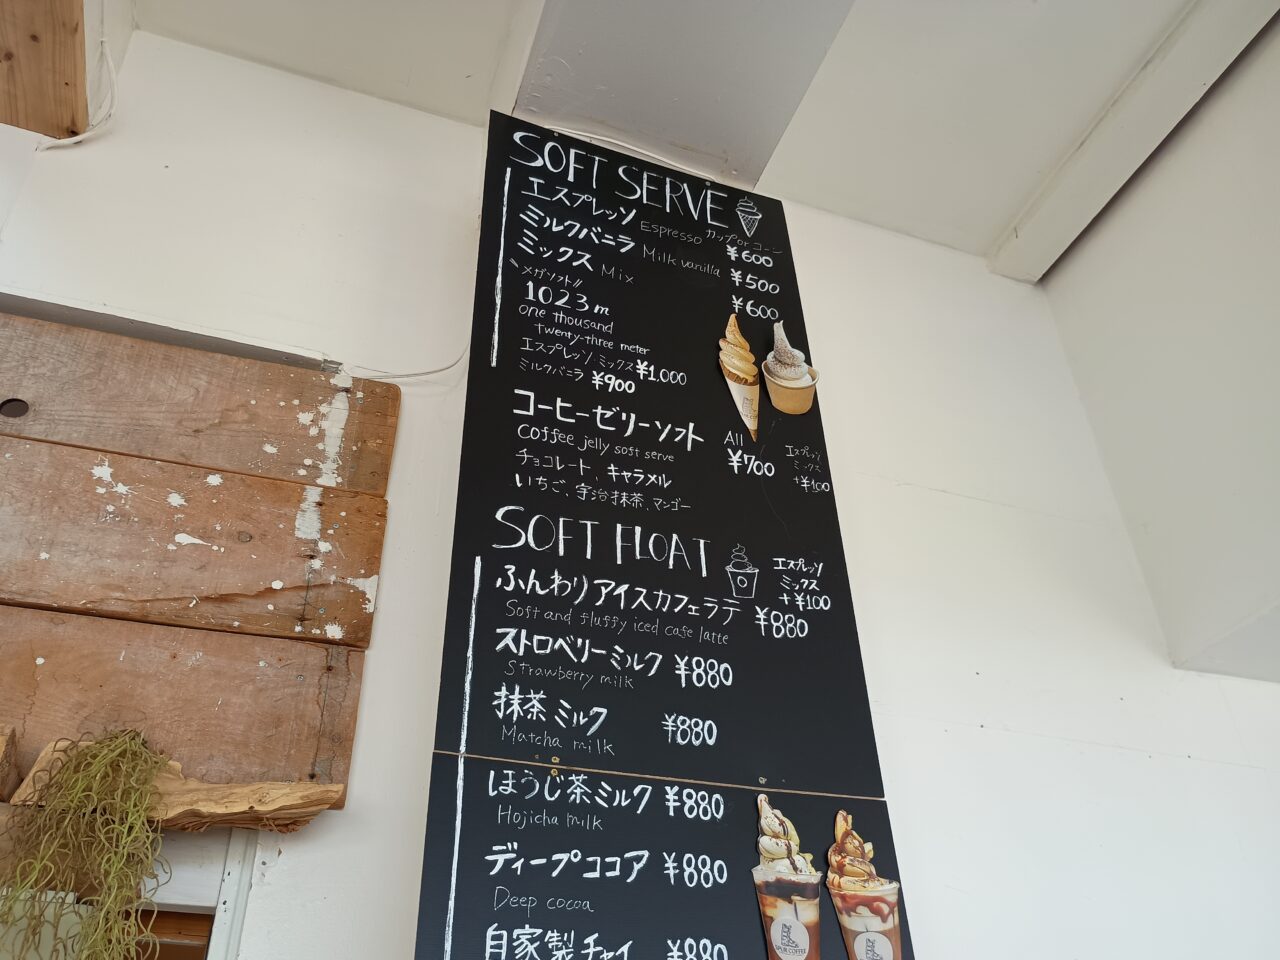 SOFT SERVE
カップ or コーン
エスプレッソ Espresso ¥600
ミルクバニラ Milk vanilla ¥500
ミックス Mix ¥600
\\メガソフト//
1023m
one thousand
twenty-three meter
エスプレッソ・ミックス ¥1,000
ミルクバニラ ¥900
コーヒーゼリーソフト
Coffee jelly soft serve
チョコレート、キャラメル
いちご、宇治抹茶、マンゴー
All
¥700
エスプレッソ
ミックス
+¥100
SOFT FLOAT
エスプレッソ
ミックス
+¥100
ふんわりアイスカフェラテ ¥880
Soft and fluffy iced cafe latte
ストロベリーミルク ¥880
Strawberry milk
抹茶ミルク ¥880
Matcha milk
ほうじ茶ミルク ¥880
Hojicha milk
ディープココア ¥880
Deep cocoa
自家製チャイ ¥880
SPUR COFFEE